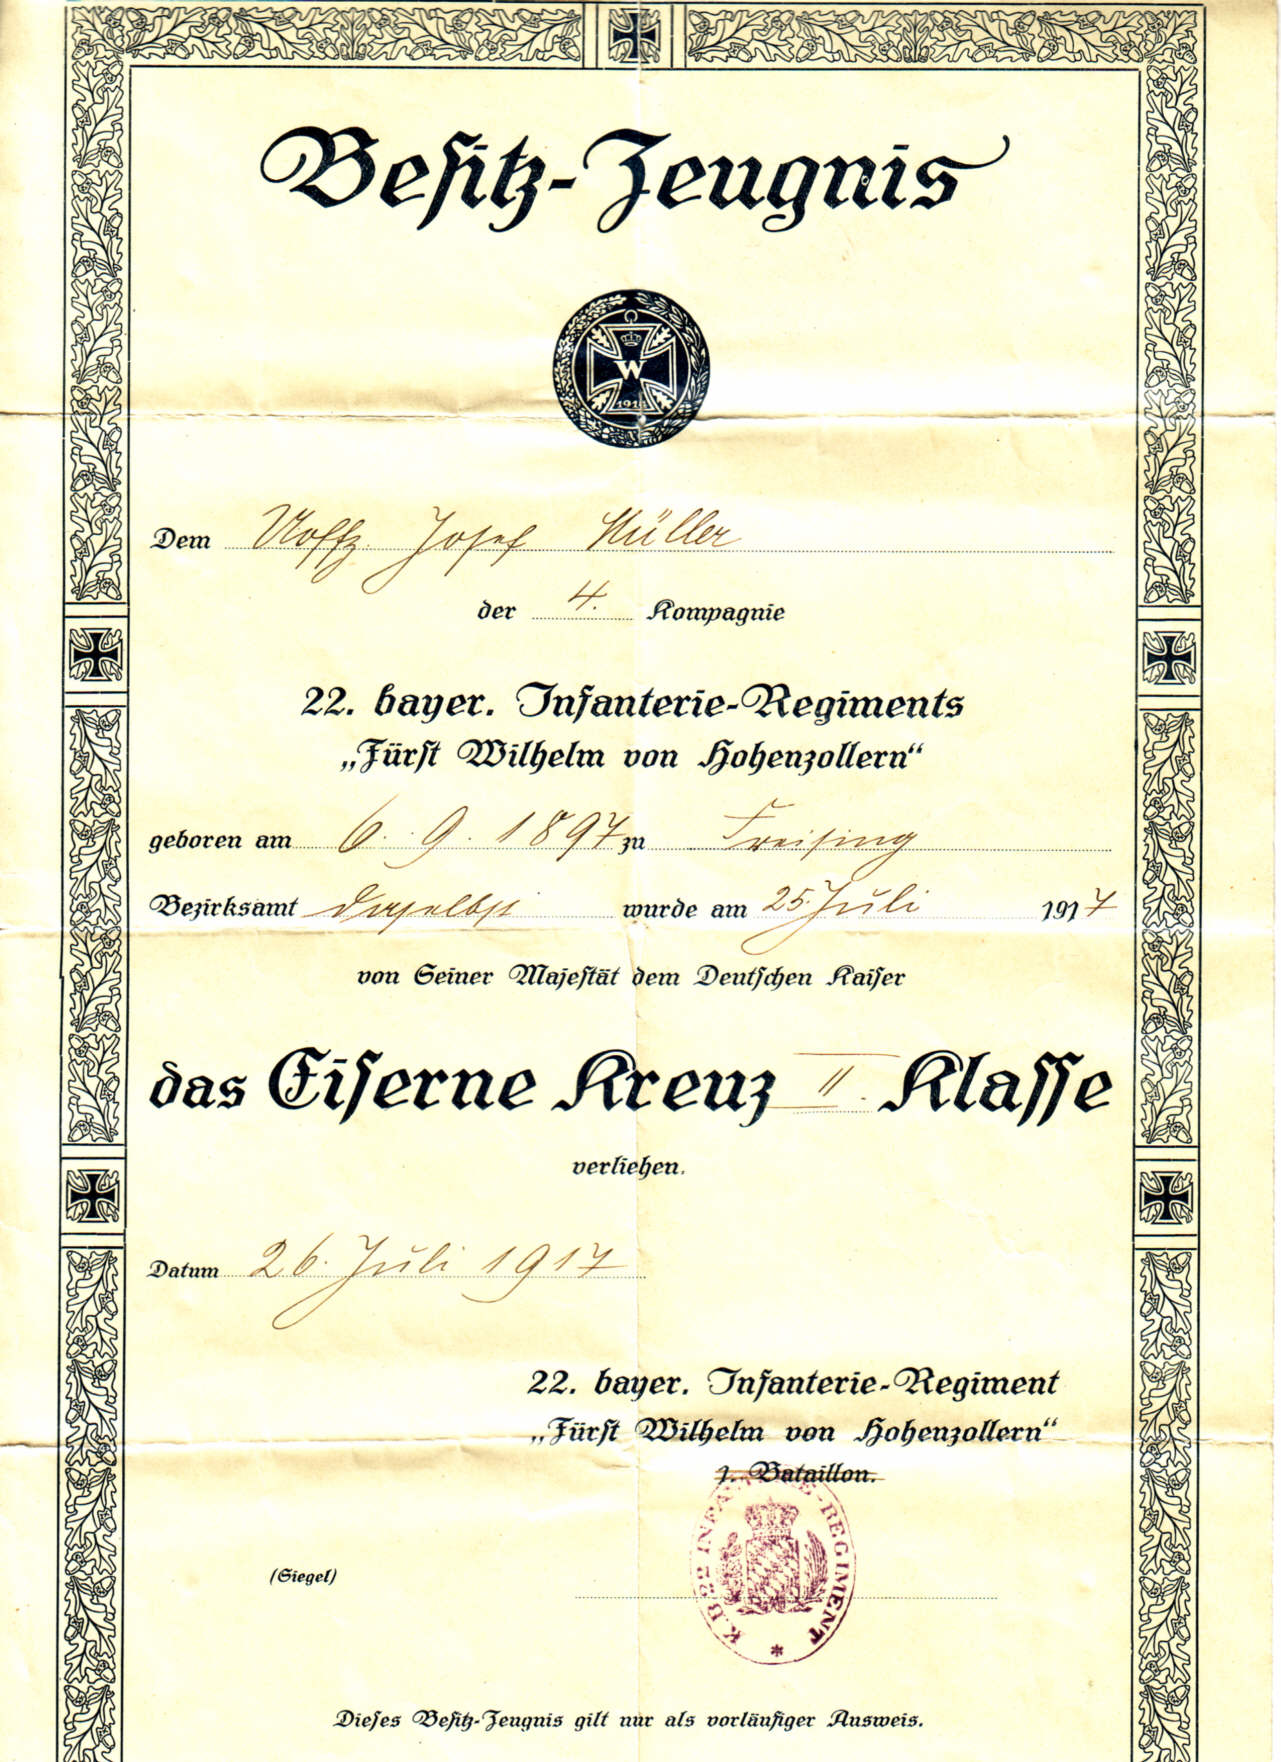 Besitz-Zeugnis
W
1914
Dem Uoffz. Josef Müller
der 4. Kompagnie
22. bayer. Infanterie-Regiments
„Fürst Wilhelm von Hohenzollern“
geboren am 6. 9. 1897 zu Freising
Bezirksamt daselbst wurde am 25. Juli 1917
von Seiner Majestät dem Deutschen Kaiser
das Eiserne Kreuz II. Klasse
verliehen.
Datum 26. Juli 1917
22. bayer. Infanterie-Regiment
„Fürst Wilhelm von Hohenzollern“
1. Bataillon.
K.B. 22 INFANTERIE-REGIMENT
(Siegel)
Dieses Besitz-Zeugnis gilt nur als vorläufiger Ausweis.